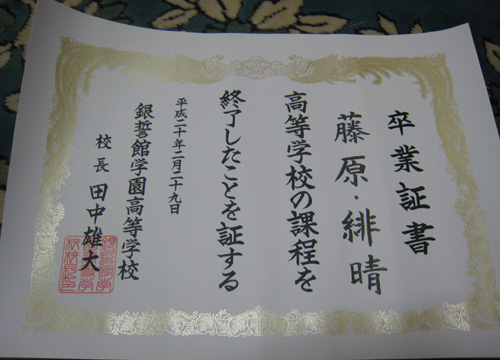 卒業証書
藤原・緋晴
高等学校の課程を
終了したことを証する
平成二十年二月二十九日
銀誓館学園高等学校
校長 田中雄大